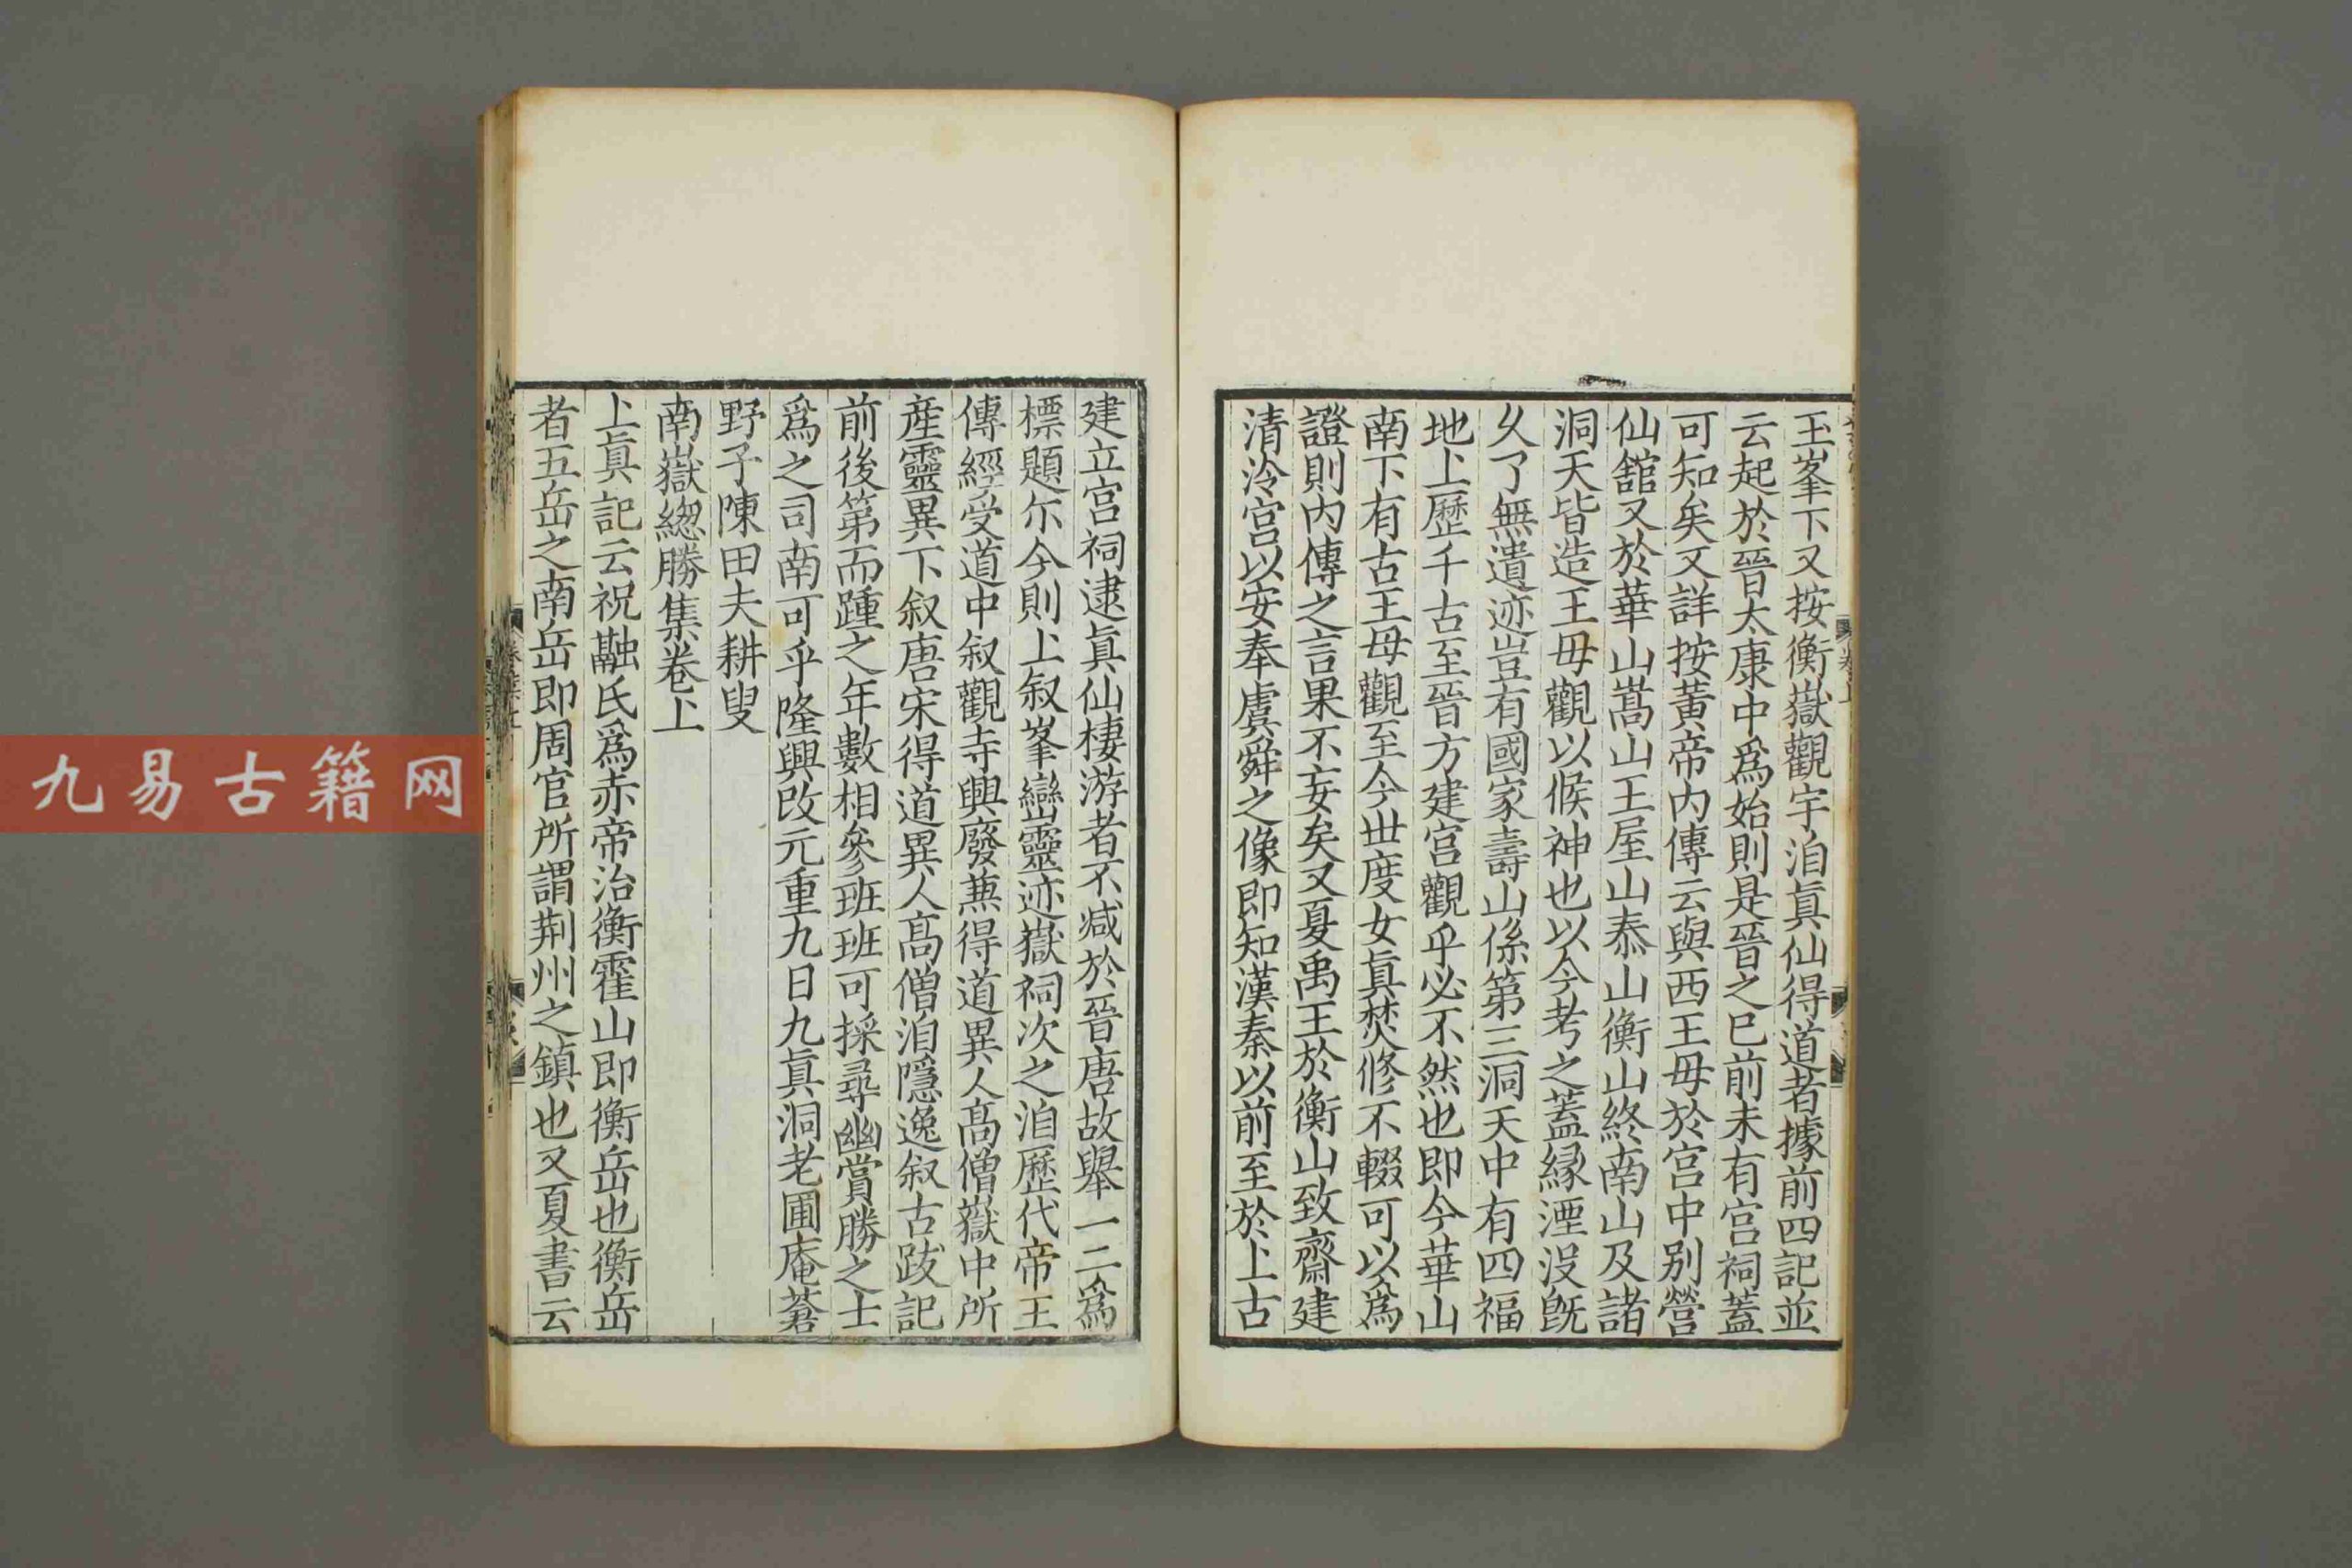 玉峯下又按衡嶽觀宇洎眞仙得道者據前四記並
云起於晉太康中爲始則是晉之已前未有宫祠蓋
可知矣又詳按黃帝内傳云與西王母於宫中别營
仙舘又於華山嵩山王屋山泰山衡山終南山及諸
洞天皆造王母觀以候神也以今考之蓋緣湮沒旣
乆了無遺迹豈有國家壽山係第三洞天中有四福
地上歷千古至晉方建宫觀乎必不然也即今華山
南下有古王母觀至今世度女眞焚修不輟可以爲
證則内傳之言果不妄矣又夏禹王於衡山致齋建
清泠宫以安奉虞舜之像即知漢秦以前至於上古
建立宫祠逮眞仙棲游者不减於晉唐故舉一二爲
標題尓今則上叙峯巒靈迹嶽祠次之洎歷代帝王
傳經受道中叙觀寺興廢兼得道異人髙僧嶽中所
産靈異下叙唐宋得道異人髙僧洎隱逸叙古跋記
前後第而踵之年數相參班班可採尋幽賞勝之士
爲之司南可乎隆興改元重九日九眞洞老圃庵蒼
野子陳田夫耕叟
南嶽緫勝集卷上
上眞記云祝融氏爲赤帝治衡霍山即衡岳也衡岳
者五岳之南岳即周官所謂荆州之鎮也又夏書云
九易古籍网